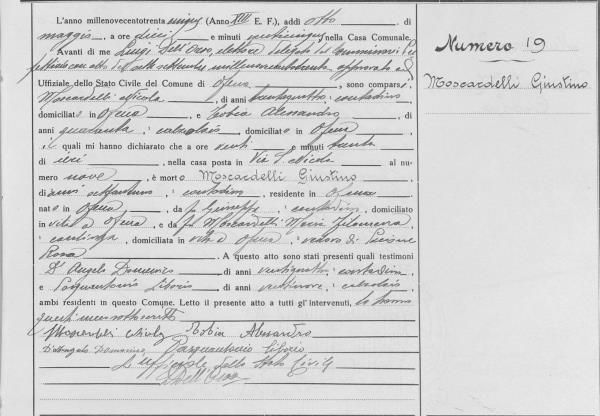 L'anno millenovecentotrenta cinque (Anno XIII E. F.), addì otto di
maggio, a ore dieci e minuti nella Casa Comunale.
Avanti di me Luigi Dell'Orso, elettore delegato
millenovecentotrenta approvato
Ufficiale dello Stato Civile del Comune di Ofena, sono comparsi
Moscardelli Nicola, di anni trentaquattro, contadino
domiciliato in Ofena e Robia Alessandro, di
anni quaranta, calzolaio, domiciliato in Ofena
il quali mi hanno dichiarato che a ore venti e minuti trenta
di ieri, nella casa posta in Via S. Nicola al nu-
mero nove, è morto Moscardelli Giustino
di anni settantuno, contadino, residente in Ofena
nato in Ofena, da fu Giuseppe, contadino, domiciliato
in vita a Ofena, e da fu Moscardelli Maria Filomena,
casalinga, domiciliata in vita a Ofena, vedovo di
Rosa A questo atto sono stati presenti quali testimoni
D'Angelo Domenico di anni ventiquattro, contadino
e Pasquantonio Liborio di anni ventinove, calzolaio
ambi residenti in questo Comune. Letto il presente atto a tutti gl'intervenuti, lo hanno
questi meco sottoscritto
Moscardelli Nicola Robia Alessandro
D'Angelo Domenico Pasquantonio Liborio
L'Ufficiale dello Stato Civile
L Dell'Orso
Numero 19
Moscardelli Giustino